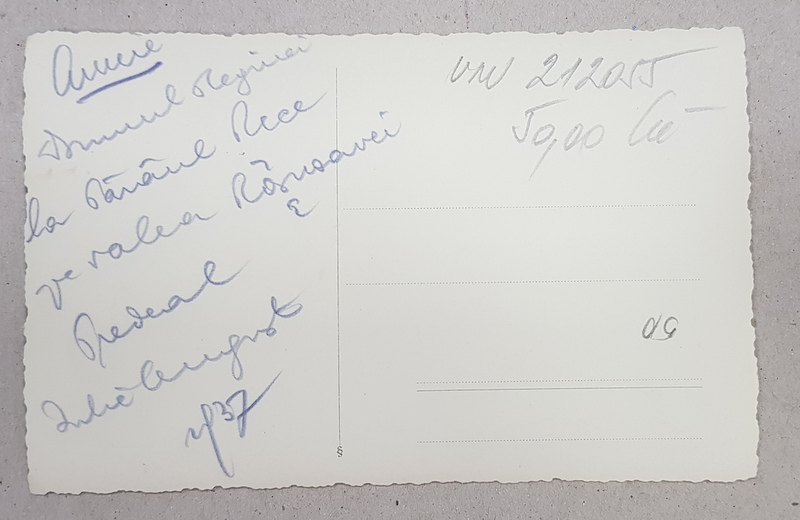 Annie
Drumul Reginei
la Pârâul Rece
pe valea Râșnoavei
Predeal
Iulie August
1937
212055
50,00 lei
§